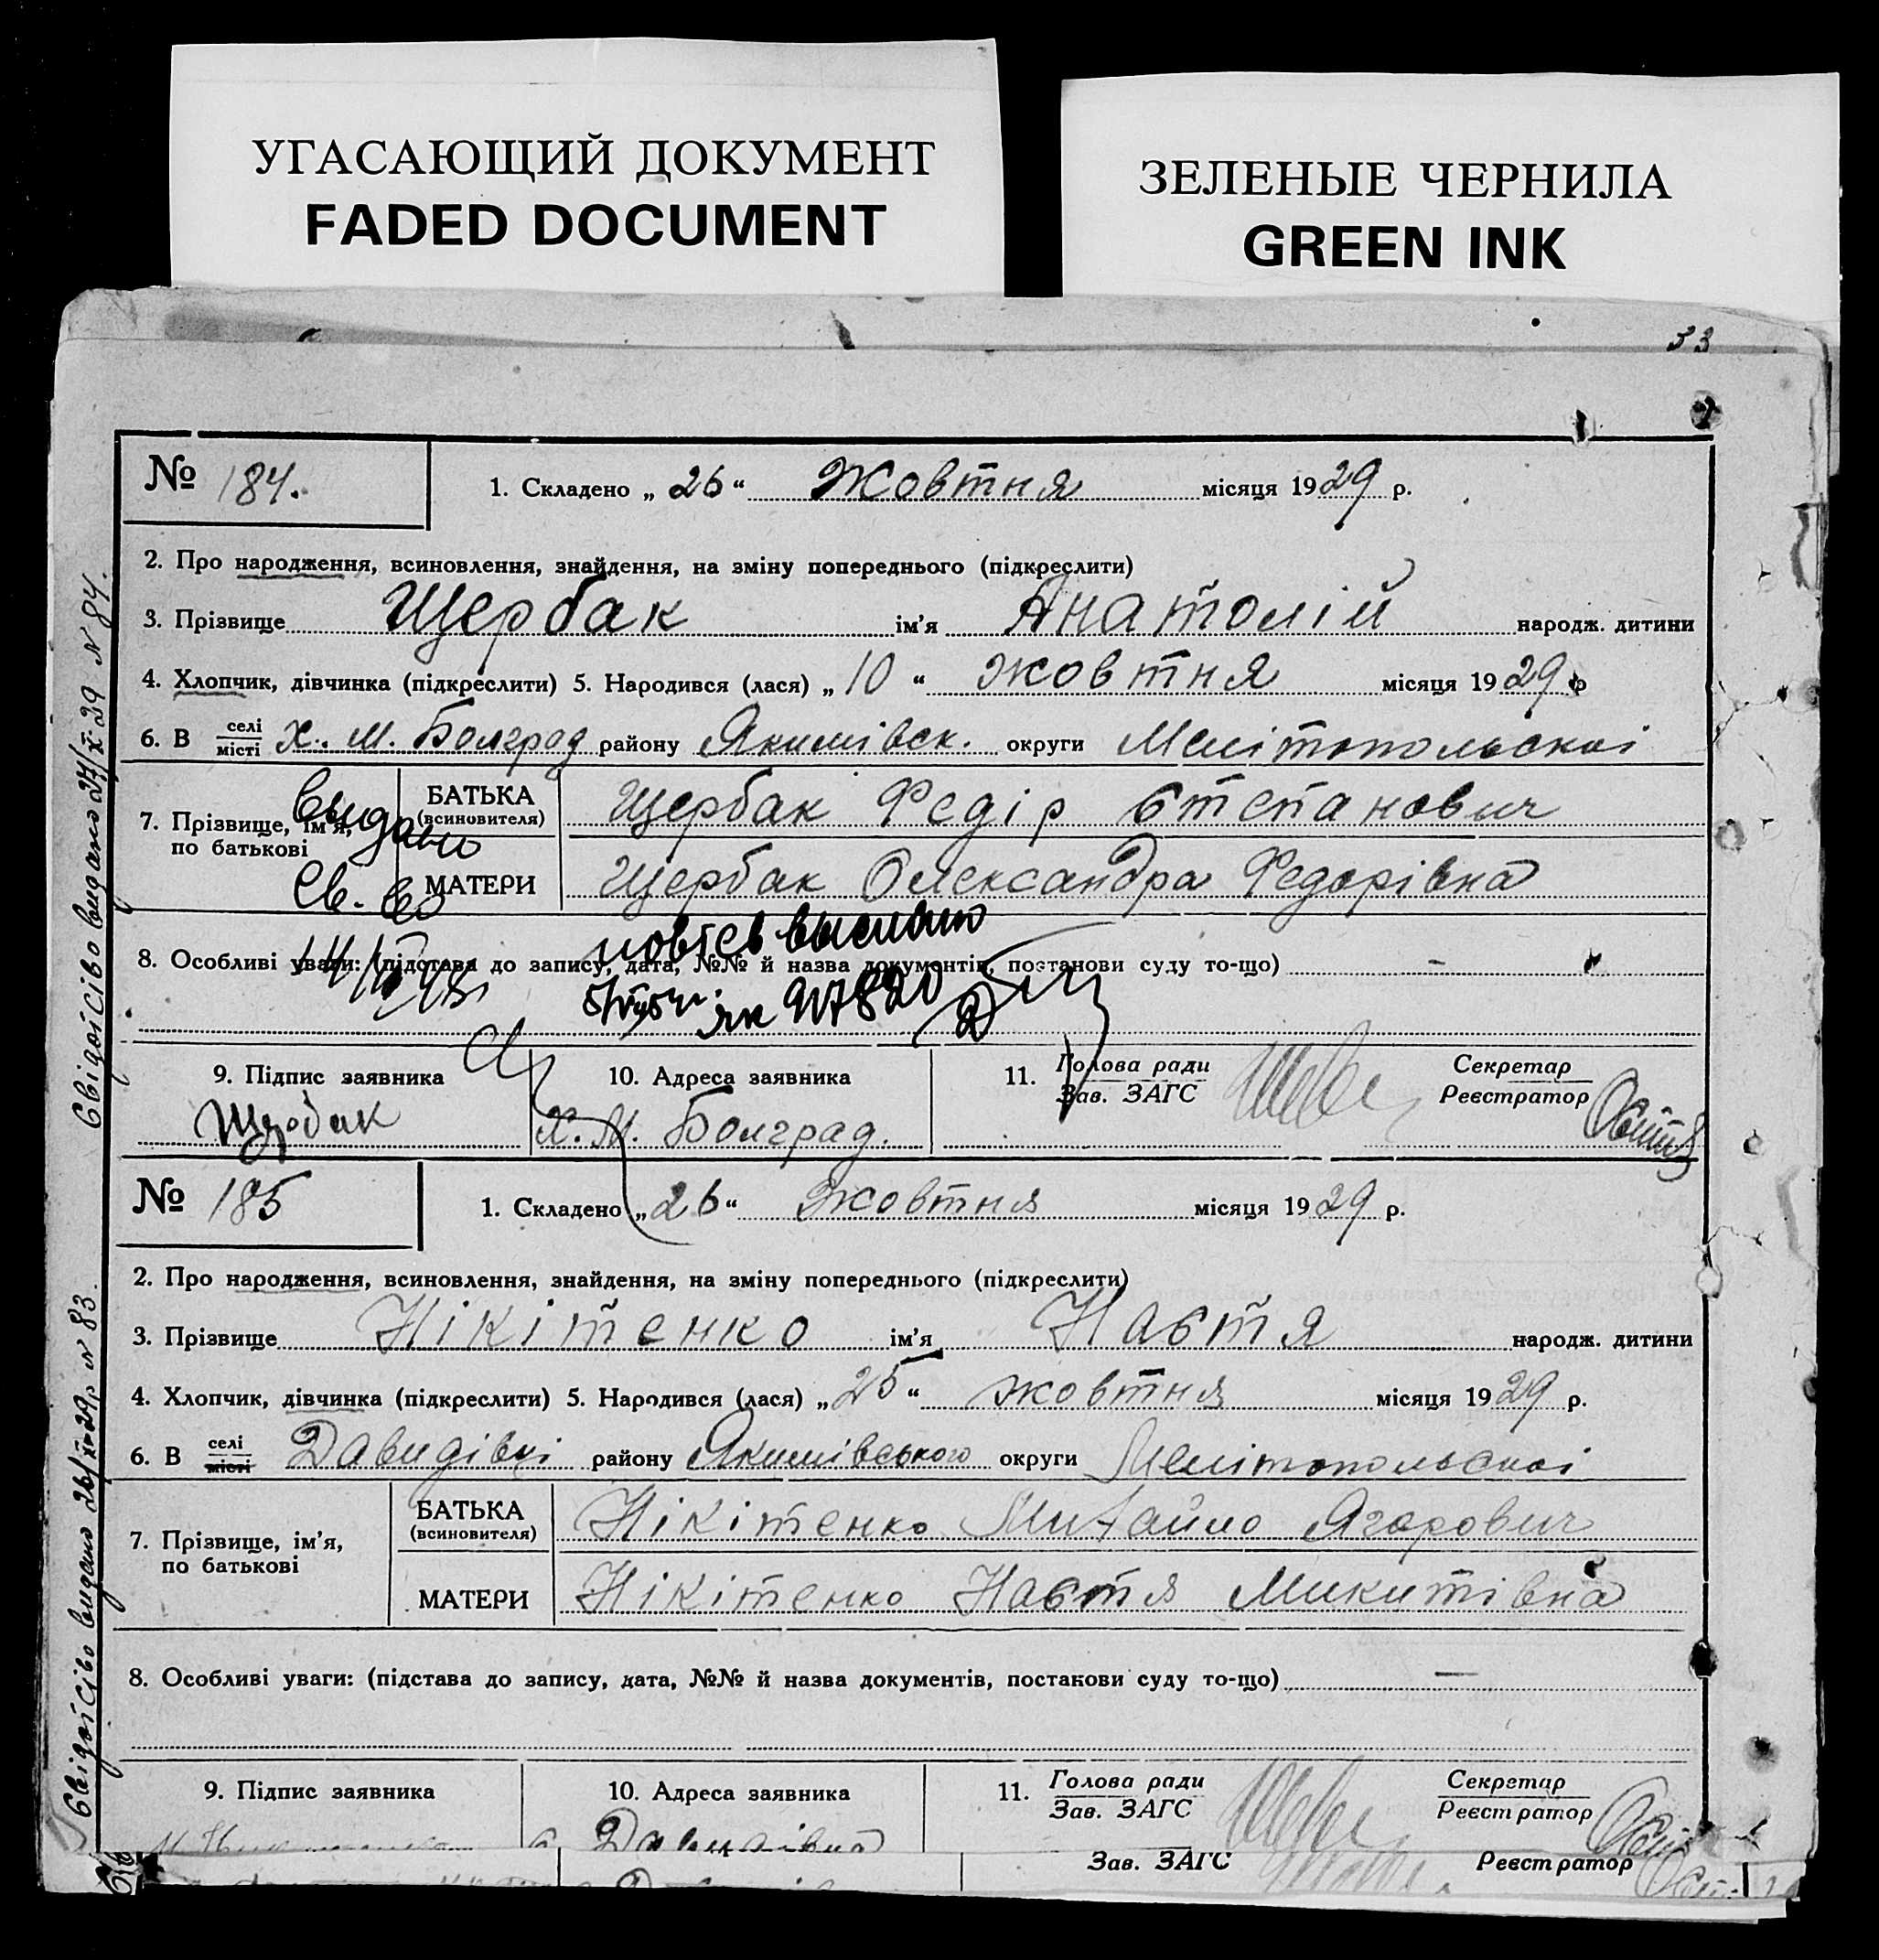 УГАСАЮЩИЙ ДОКУМЕНТ
FADED DOCUMENT
ЗЕЛЕНЫЕ ЧЕРНИЛА
GREEN INK
53
№ 184.
1. Складено „ 26 “ Жовтня місяця 1929 р.
2. Про народження, всиновлення, знайдення, на зміну попереднього (підкреслити)
3. Прізвище Щербак ім'я Анатолій народж. дитини
4. Хлопчик, дівчинка (підкреслити) 5. Народився (лася) „ 10 “ жовтня місяця 1929 р
6. В селі місті Х. М. Болград району Якимівск. округи Мелітопольскоі
7. Прізвище, ім'я, по батькові
БАТЬКА (всиновителя) Щербак Федір Степанович
МАТЕРИ Щербак Олександра Федорівна
видано
Св-во
8. Особливі уваги: (підстава до запису, дата, №№ й назва документів, постанови суду то-що) –
9. Підпис заявника
Щербак
10. Адреса заявника
Х. М. Болград.
11. Голова ради
Зав. ЗАГС
Секретар
Реєстратор
Свідоцтво видано 27/X-29 N 84.
№ 185
1. Складено „ 26 “ Жовтня місяця 1929 р.
2. Про народження, всиновлення, знайдення, на зміну попереднього (підкреслити)
3. Прізвище Нікітенко ім'я Настя народж. дитини
4. Хлопчик, дівчинка (підкреслити) 5. Народився (лася) „ 25 “ жовтня місяця 1929 р.
6. В селі місті Давидівці району Якимівського округи Мелітопольскоі
7. Прізвище, ім'я, по батькові
БАТЬКА (всиновителя) Нікітенко Михайло Ягорович
МАТЕРИ Нікітенко Настя Микитівна
8. Особливі уваги: (підстава до запису, дата, №№ й назва документів, постанови суду то-що) —
9. Підпис заявника
10. Адреса заявника
с. Давидівка
11. Голова ради
Зав. ЗАГС
Секретар
Реєстратор
Свідоцтво видано 26/X-29р N 83.
Зав. ЗАГС
Реєстратор